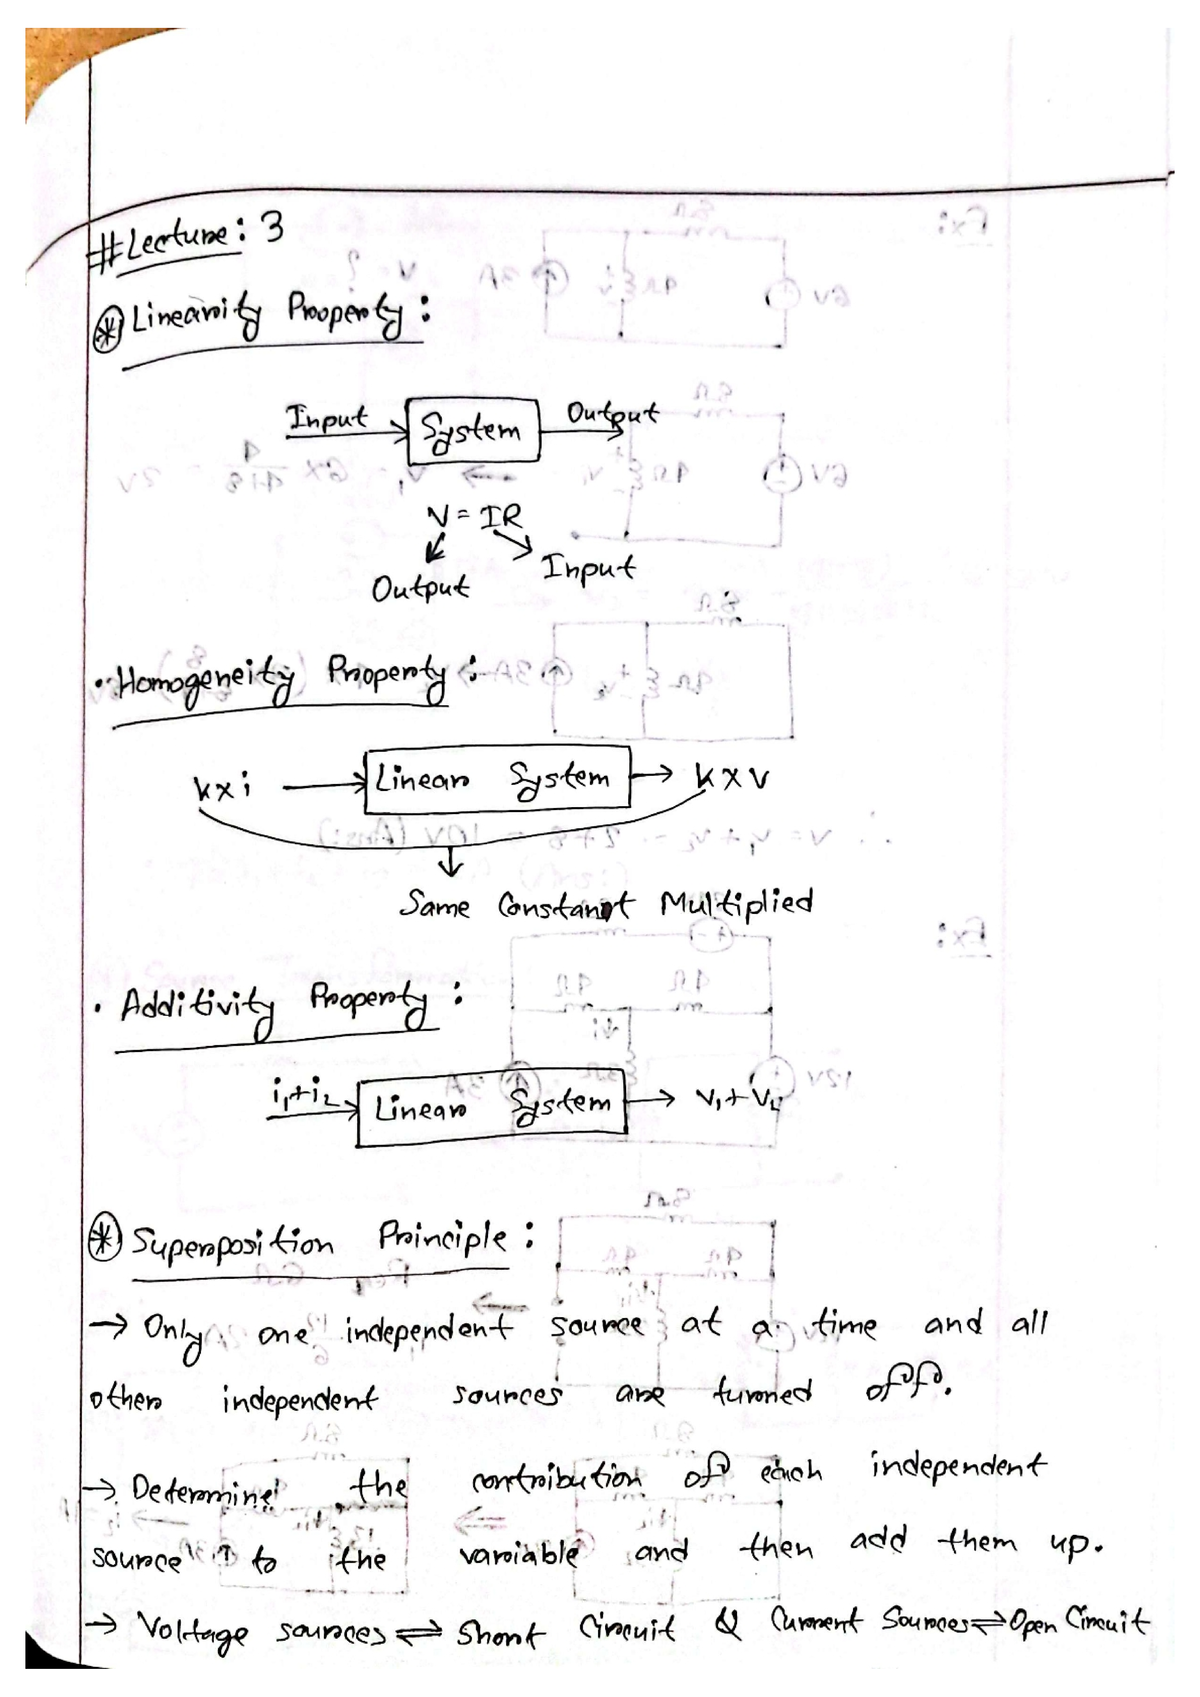 #Lecture: 3
⊛ Linearity Property:
Input → System → Output
V = IR
Output Input
• Homogeneity Property:
k×i → Linear System → k×v
Same Constant Multiplied
• Additivity Property:
i₁+i₂ → Linear System → V₁+V₂
⊛ Superposition Principle:
→ Only one independent source at a time and all
other independent sources are turned off.
→ Determine the contribution of each independent
source to the variable and then add them up.
→ Voltage sources ⇌ Short Circuit & Current Sources ⇌ Open Circuit